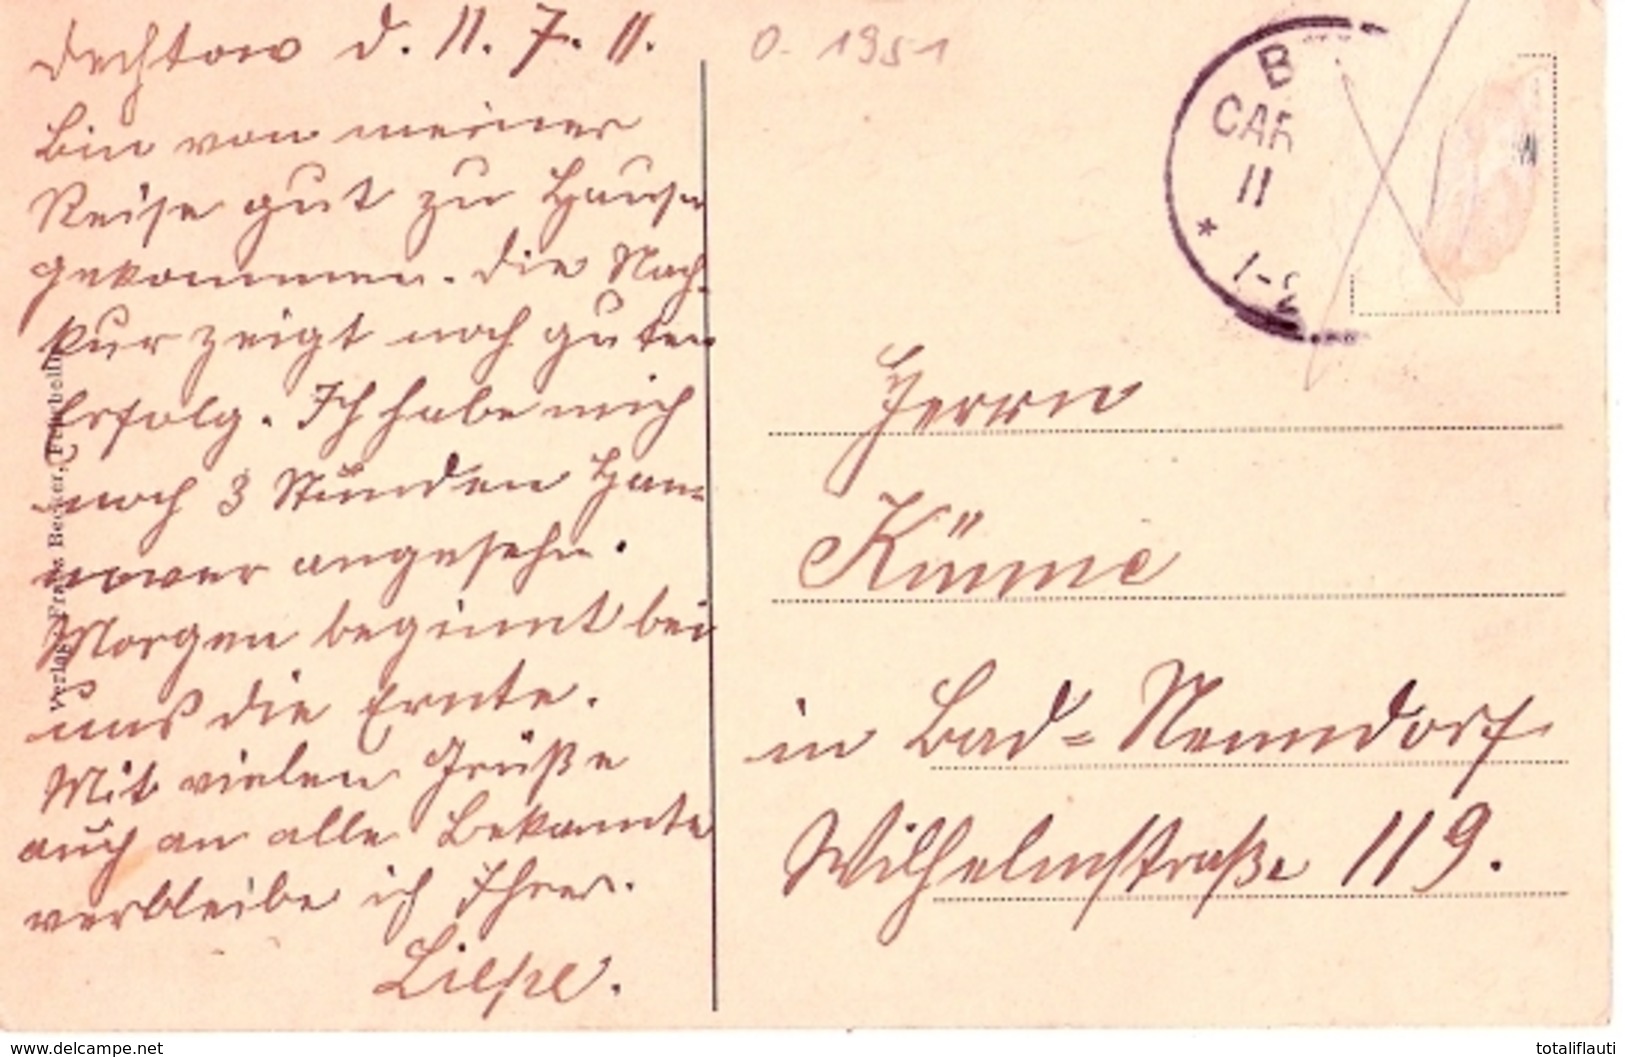 Dechtow d. 11. 7. 11.
Bin von meiner
Reise gut zu Hause
gekommen. Die Nach-
kur zeigt noch guten
Erfolg. Ich habe mich
noch 3 Stunden Han-
nover angesehn.
Morgen beginnt bei
uns die Ernte.
Mit vielen Grüße
auch an alle Bekannte
verbleibe ich Ihrer.
Liesße.
Verlag Franz Becker, Fehrbellin
0- 1951
B
CAR
11
* 1-2
Herrn
Künne
in Bad=Nenndorf
Wilhelmstraße 119.
www.delcampe.net
totaliflauti